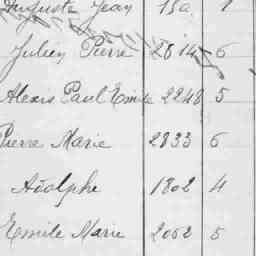 Auguste Jean
Julien Pierre 2814 6
Alexis Paul Emile 2248 5
Pierre Marie 2833 6
Adolphe 1802 4
Emile Marie 2062 5